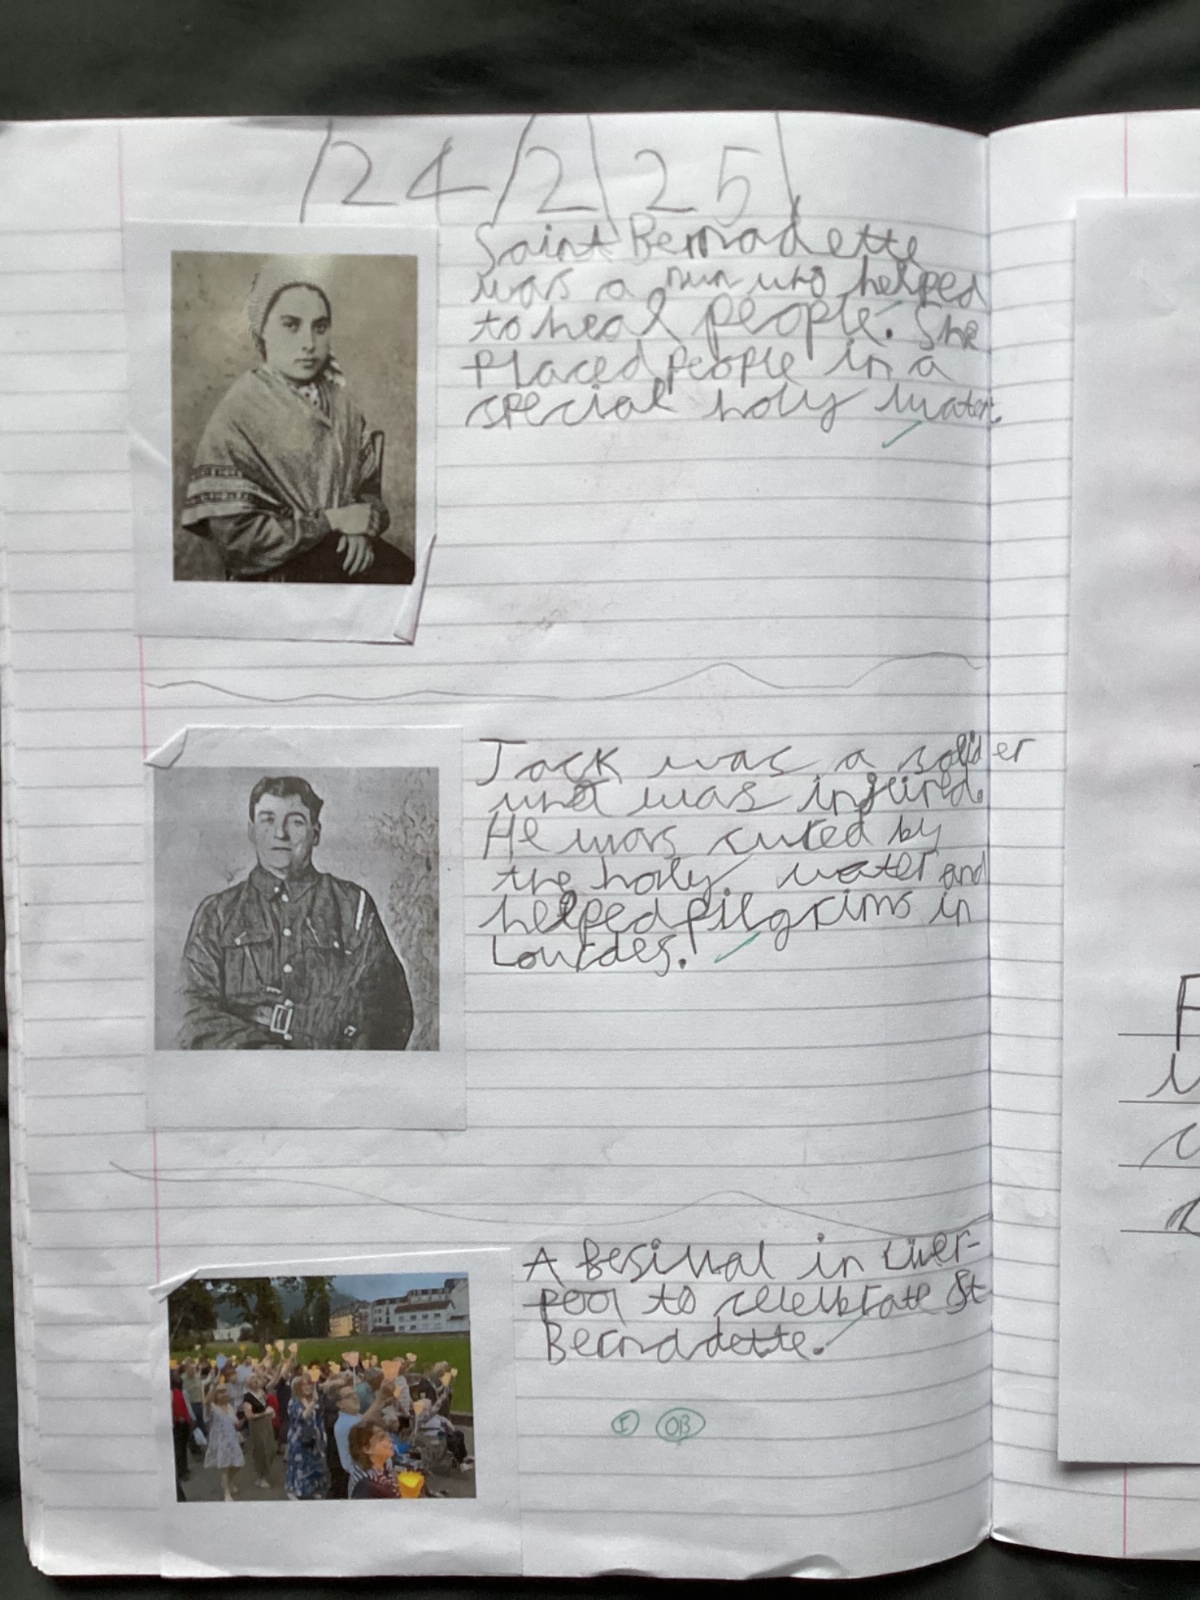 24/2/25
Saint Bernadette
was a nun who helped
to heal people. She
placed people in a
special holy water.
Jack was a solider
who was injured.
He was cured by
the holy water and
helped pilgrims in
Lourdes.
A fesival in Liver-
pool to celebrate St
Bernadette.
I OB